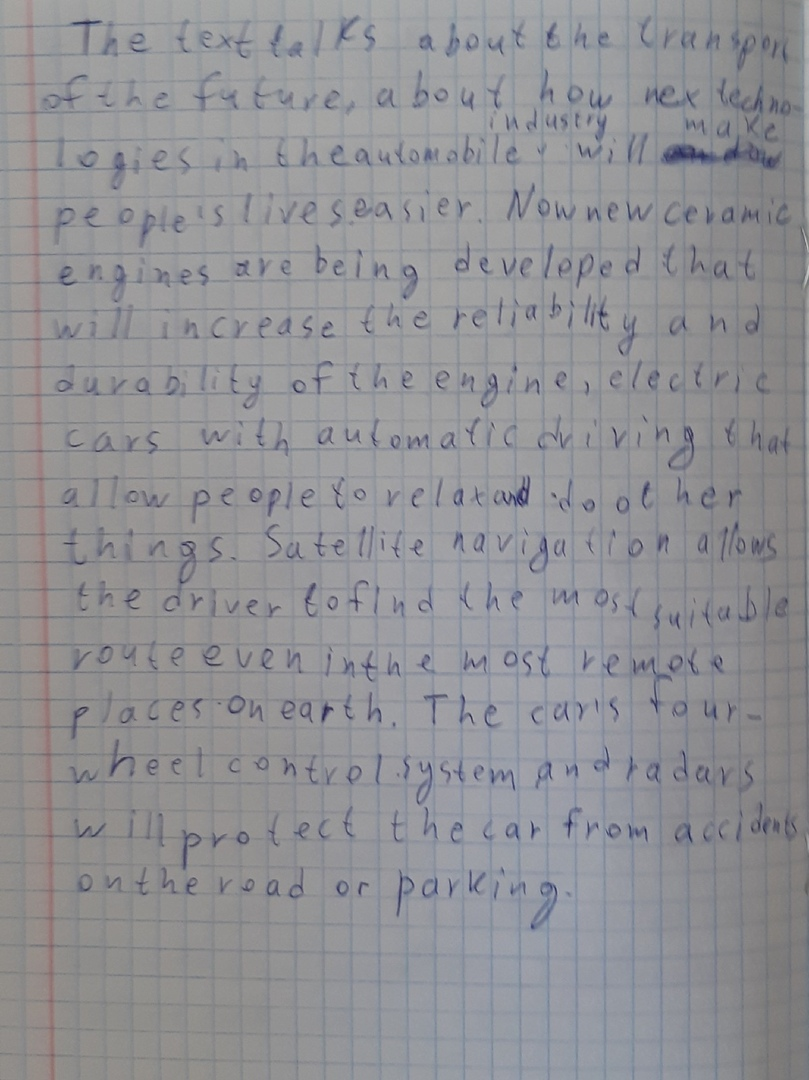 The text talks about the transport
of the future, about how nex techno-
industry make
logies in the automobile will
people's lives easier. Now new ceramic
engines are being developed that
will increase the reliability and
durability of the engine, electric
cars with automatic driving that
allow people to relax and do other
things. Satellite navigation allows
the driver to find the most suitable
route even in the most remote
places on earth. The car's four-
wheel control system and radars
will protect the car from accidents
on the road or parking.